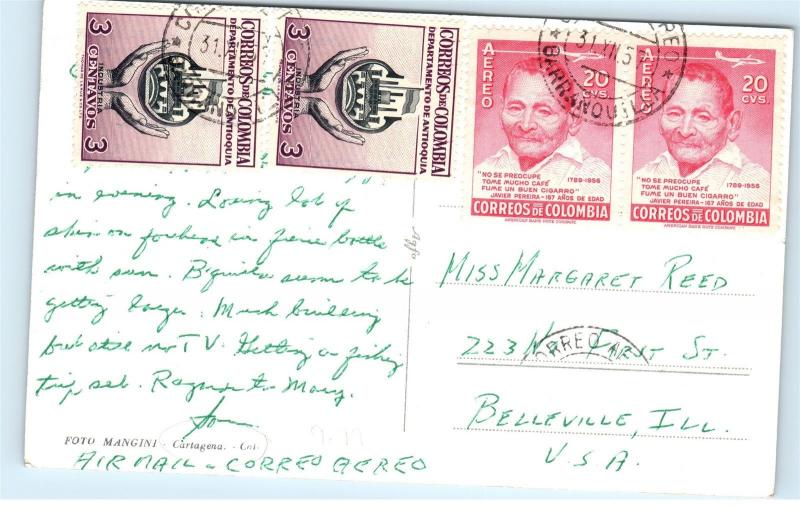 CORREOS DE COLOMBIA
DEPARTAMENTO DE ANTIOQUIA
INDUSTRIA
3 CENTAVOS 3
CORREOS DE COLOMBIA
DEPARTAMENTO DE ANTIOQUIA
INDUSTRIA
3 CENTAVOS 3
AEREO
20
CVS.
"NO SE PREOCUPE
TOME MUCHO CAFÉ
FUME UN BUEN CIGARRO"
1789-1956
JAVIER PEREIRA - 167 AÑOS DE EDAD
CORREOS DE COLOMBIA
AMERICAN BANK NOTE COMPANY
AEREO
20
CVS.
"NO SE PREOCUPE
TOME MUCHO CAFÉ
FUME UN BUEN CIGARRO"
1789-1956
JAVIER PEREIRA - 167 AÑOS DE EDAD
CORREOS DE COLOMBIA
AMERICAN BANK NOTE COMPANY
31.VII.5
BARRANQUILLA
in evening. Losing lot of
skin on forehead in battle
with sun. B'quilla seems to be
getting larger. Much building
but still no TV. Getting a fishing
trip set. Regards to Mary.
FOTO MANGINI - Cartagena. - Col.
AIR MAIL - CORREO AEREO
MISS MARGARET REED
223 N. FIRST ST.
CORREO
BELLEVILLE, ILL.
U.S.A.